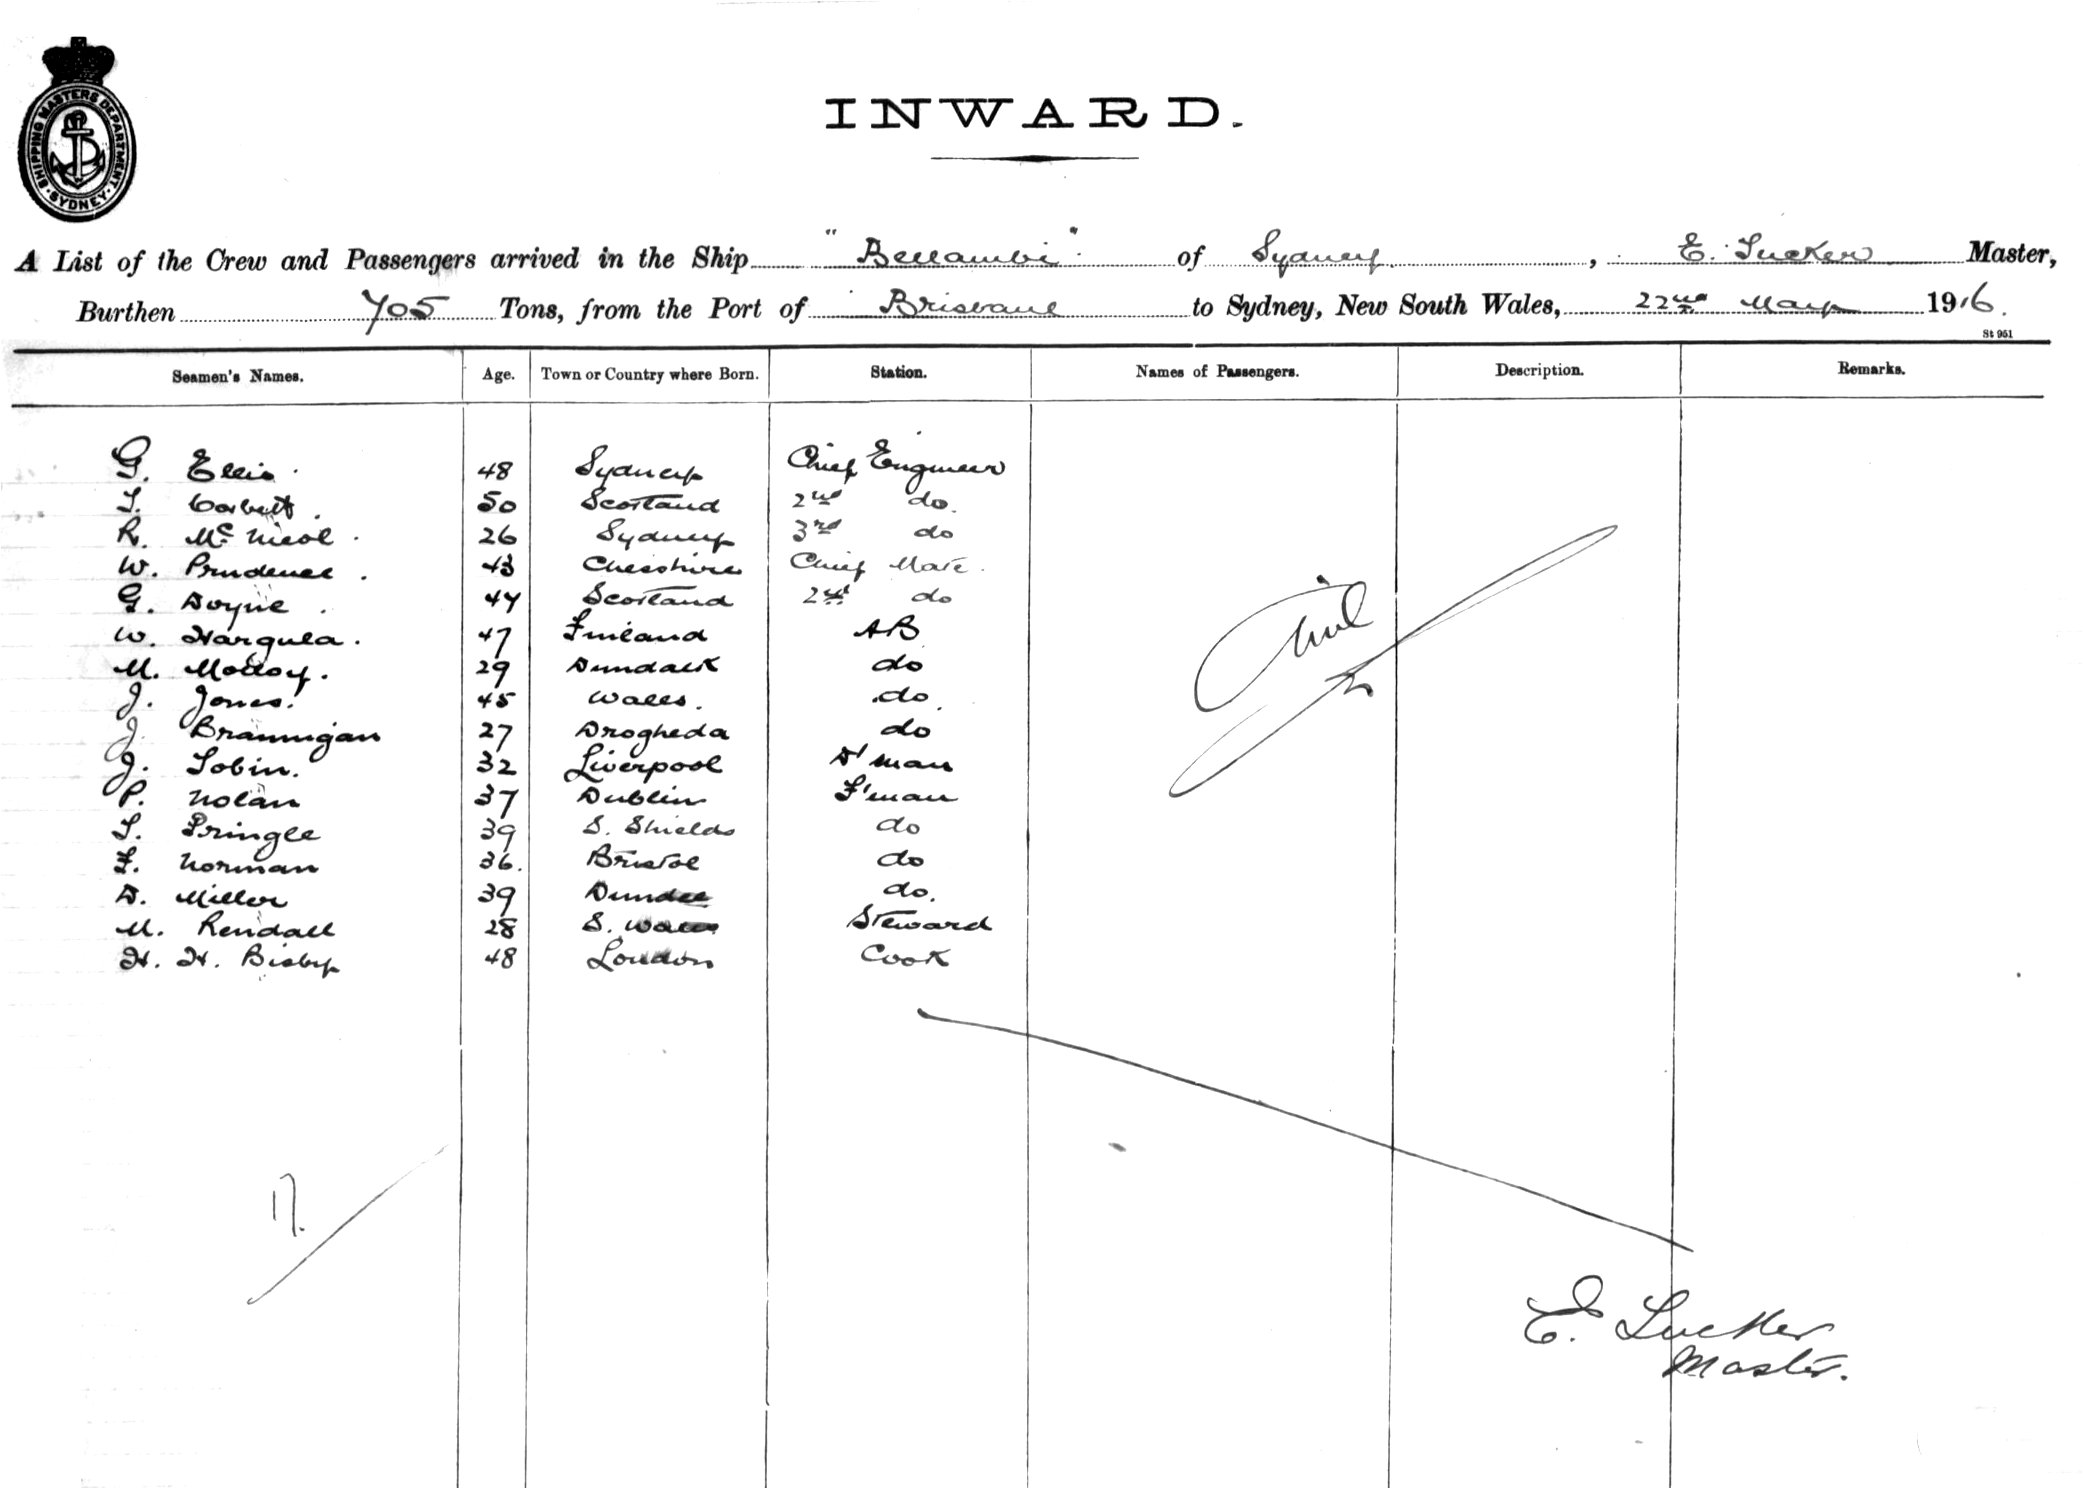 SHIPPING MASTERS DEPARTMENT · SYDNEY ·
INWARD.
A List of the Crew and Passengers arrived in the Ship "Bellambi" of Sydney, E. Tucker Master,
Burthen 705 Tons, from the Port of Brisbane to Sydney, New South Wales, 22nd May 1916.
St 951
Seamen's Names. Age. Town or Country where Born. Station. Names of Passengers. Description. Remarks.
G. Ellis 48 Sydney Chief Engineer
T. Corbett 50 Scotland 2nd do.
R. McNicol 26 Sydney 3rd do
W. Prudence 43 Cheshire Chief Mate
G. Doyne 44 Scotland 2nd do
W. Hargula 47 Finland AB
M. Molloy 29 Dundalk do
J. Jones 45 Wales. do
J. Brannigan 27 Drogheda do
J. Tobin. 32 Liverpool D'man
P. Nolan 37 Dublin F'man
T. Pringle 39 S. Shields do
F. Norman 36. Bristol do
D. Miller 39 Dundee do.
M. Rendall 28 S. Wales Steward
H. H. Bisby 48 London Cook
Nil
17.
E. Tucker
Master.